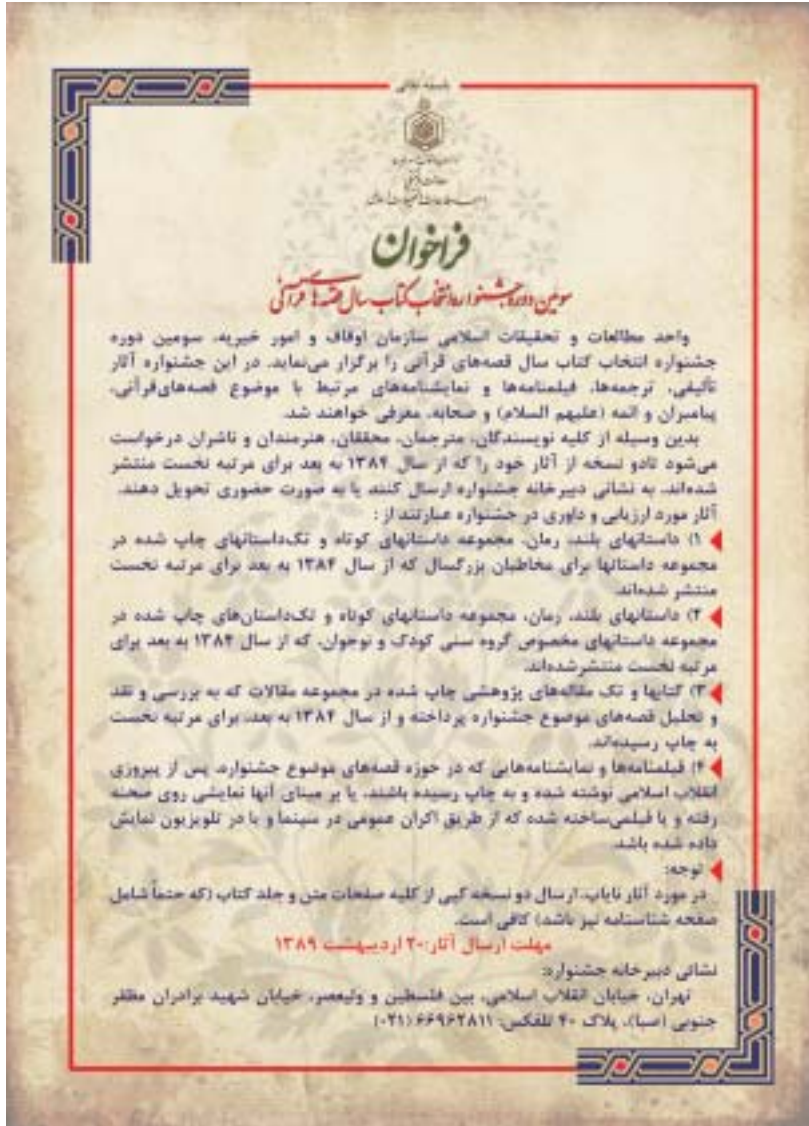 باسمه تعالی
فراخوان
سومین دوره جشنواره انتخاب کتاب سال قصه‌های قرآنی
واحد مطالعات و تحقیقات اسلامی سازمان اوقاف و امور خیریه، سومین دوره
جشنواره انتخاب کتاب سال قصه‌های قرآنی را برگزار می‌نماید. در این جشنواره آثار
تألیفی، ترجمه‌ها، فیلمنامه‌ها و نمایشنامه‌های مرتبط با موضوع قصه‌های‌قرآنی،
پیامبران و ائمه (علیهم السلام) و صحابه، معرفی خواهند شد.
بدین وسیله از کلیه نویسندگان، مترجمان، محققان، هنرمندان و ناشران درخواست
می‌شود تادو نسخه از آثار خود را که از سال ۱۳۸۴ به بعد برای مرتبه نخست منتشر
شده‌اند، به نشانی دبیرخانه جشنواره ارسال کنند یا به صورت حضوری تحویل دهند.
آثار مورد ارزیابی و داوری در جشنواره عبارتند از :
۱) داستانهای بلند، رمان، مجموعه داستانهای کوتاه و تک‌داستانهای چاپ شده در
مجموعه داستانها برای مخاطبان بزرگسال که از سال ۱۳۸۴ به بعد برای مرتبه نخست
منتشر شده‌اند.
۲) داستانهای بلند، رمان، مجموعه داستانهای کوتاه و تک‌داستان‌های چاپ شده در
مجموعه داستانهای مخصوص گروه سنی کودک و نوجوان، که از سال ۱۳۸۴ به بعد برای
مرتبه نخست منتشرشده‌اند.
۳) کتابها و تک مقاله‌های پژوهشی چاپ شده در مجموعه مقالات که به بررسی و نقد
و تحلیل قصه‌های موضوع جشنواره پرداخته و از سال ۱۳۸۴ به بعد، برای مرتبه نخست
به چاپ رسیده‌اند.
۴) فیلمنامه‌ها و نمایشنامه‌هایی که در حوزه قصه‌های موضوع جشنواره، پس از پیروزی
انقلاب اسلامی نوشته شده و به چاپ رسیده باشند، یا بر مبنای آنها نمایشی روی صحنه
رفته و یا فیلمی‌ساخته شده که از طریق اکران عمومی در سینما و یا در تلویزیون نمایش
داده شده باشد.
توجه:
در مورد آثار نایاب، ارسال دو نسخه کپی از کلیه صفحات متن و جلد کتاب (که حتماً شامل
صفحه شناسنامه نیز باشد) کافی است.
مهلت ارسال آثار: ۲۰ اردیبهشت ۱۳۸۹
نشانی دبیرخانه جشنواره:
تهران، خیابان انقلاب اسلامی، بین فلسطین و ولیعصر، خیابان شهید برادران مظفر
جنوبی (صبا)، پلاک ۴۰ تلفکس: ۶۶۹۶۲۸۱۱ (۰۲۱)